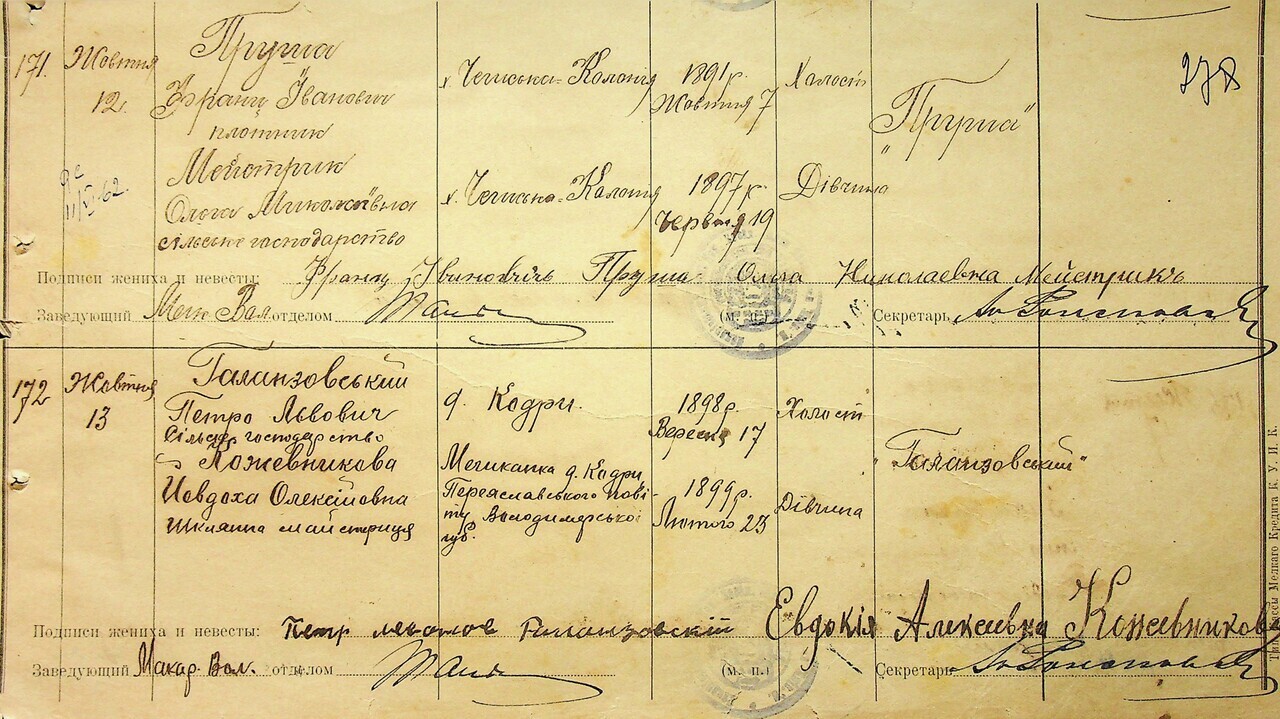 278
171. Жовтня 12
Пруша
Франц Іванович
плотник
х. Чешська-Колонія
1891 р.
Жовтня 7
Холост
"Пруша"
Мейстрик
Ольга Миколаївна
сільське господарство
х. Чешська-Колонія
1897 р.
Червня 19
Дівчина
Подписи жениха и невесты: Франц Ивановичъ Пруша Ольга Николаевна Мейстрикъ
Заведующий Вол. отделом (м. п.) Секретарь
172 Жовтня 13
Галанзовський
Петро Львович
Сільське господарство
д. Кодри.
1898 р.
Вересня 17
Холост
"Галанзовський"
Кожевникова
Иевдоха Олексіївна
Шкляна майстриця
д. Кодри
Переяславського пові-
ту Володимерської
губ.
1899 р.
Лютого 23
Дівчина
Подписи жениха и невесты: Петр Галанзовскій Евдокія Алексеевна Кожевникова
Заведующий Макар. Вол. отделом (м. п.) Секретарь